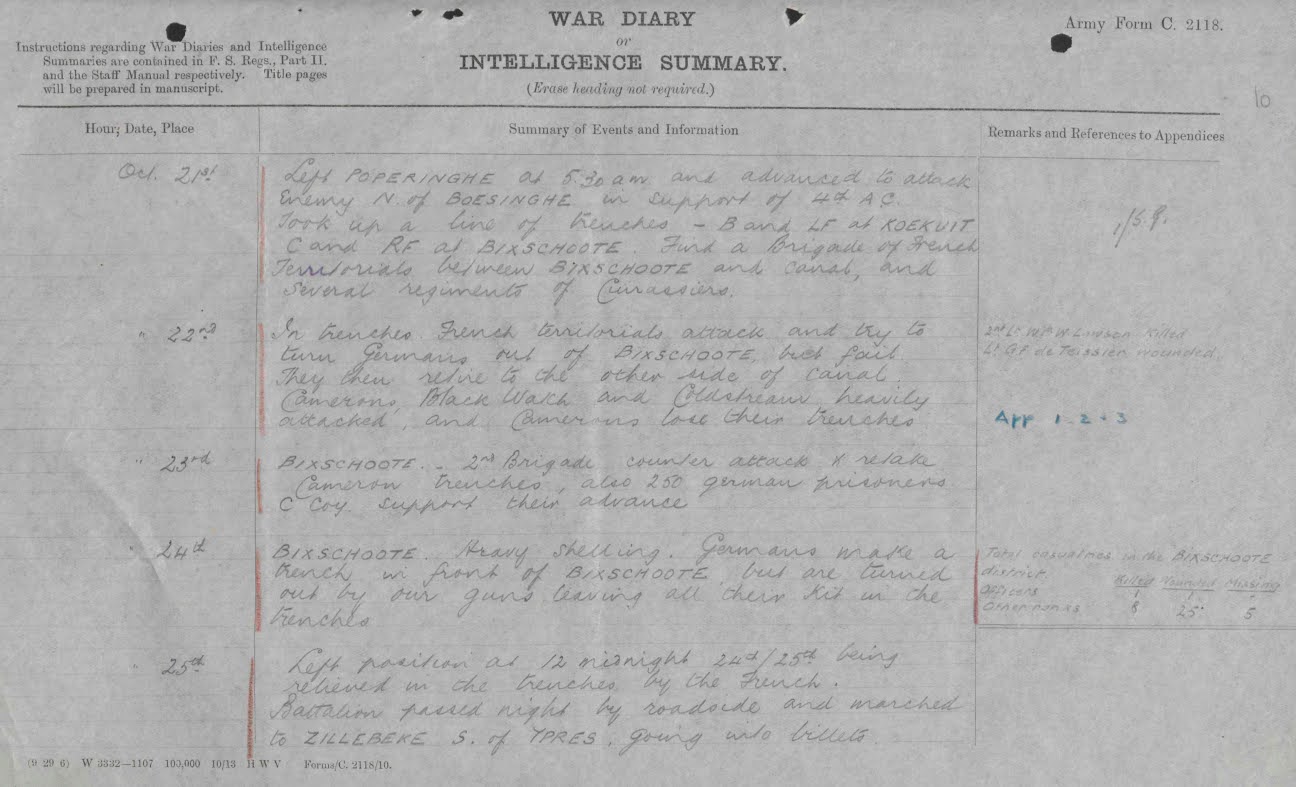 WAR DIARY
or
INTELLIGENCE SUMMARY.
(Erase heading not required.)
Army Form C. 2118.
Instructions regarding War Diaries and Intelligence
Summaries are contained in F. S. Regs., Part II.
and the Staff Manual respectively. Title pages
will be prepared in manuscript.
10
Hour, Date, Place
Summary of Events and Information
Remarks and References to Appendices
Oct. 21st
Left POPERINGHE at 5.30 am and advanced to attack
Enemy N. of BOESINGHE in support of 4th A C.
Took up a line of trenches - B and LF at KOEKUIT
C and RF at BIXSCHOOTE. Find a Brigade of French
Territorials between BIXSCHOOTE and canal, and
several regiments of Cuirassiers.
" 22nd
In trenches. French territorials attack and try to
turn Germans out of BIXSCHOOTE, but fail.
They then retire to the other side of canal.
Camerons, Black Watch and Coldstream heavily
attacked, and Camerons lose their trenches
2nd Lt Wm W Lawson Killed
Lt G F de Teissier wounded.
App 1. 2. 3
" 23rd
BIXSCHOOTE. - 2nd Brigade counter attack & retake
Cameron trenches, also 250 german prisoners
C Coy. support their advance
" 24th
BIXSCHOOTE. Heavy shelling. Germans make a
trench in front of BIXSCHOOTE, but are turned
out by our guns leaving all their Kit in the
trenches
Total casualties in the BIXSCHOOTE
district.
Killed Wounded Missing
Officers 1 1 -
Other ranks 8 25 5
" 25th
Left position at 12 midnight 24th/25th being
relieved in the trenches by the French.
Battalion passed night by roadside and marched
to ZILLEBEKE S. of YPRES, going into billets.
(9 29 6) W 3332—1107 100,000 10/13 H W V Forms/C. 2118/10.